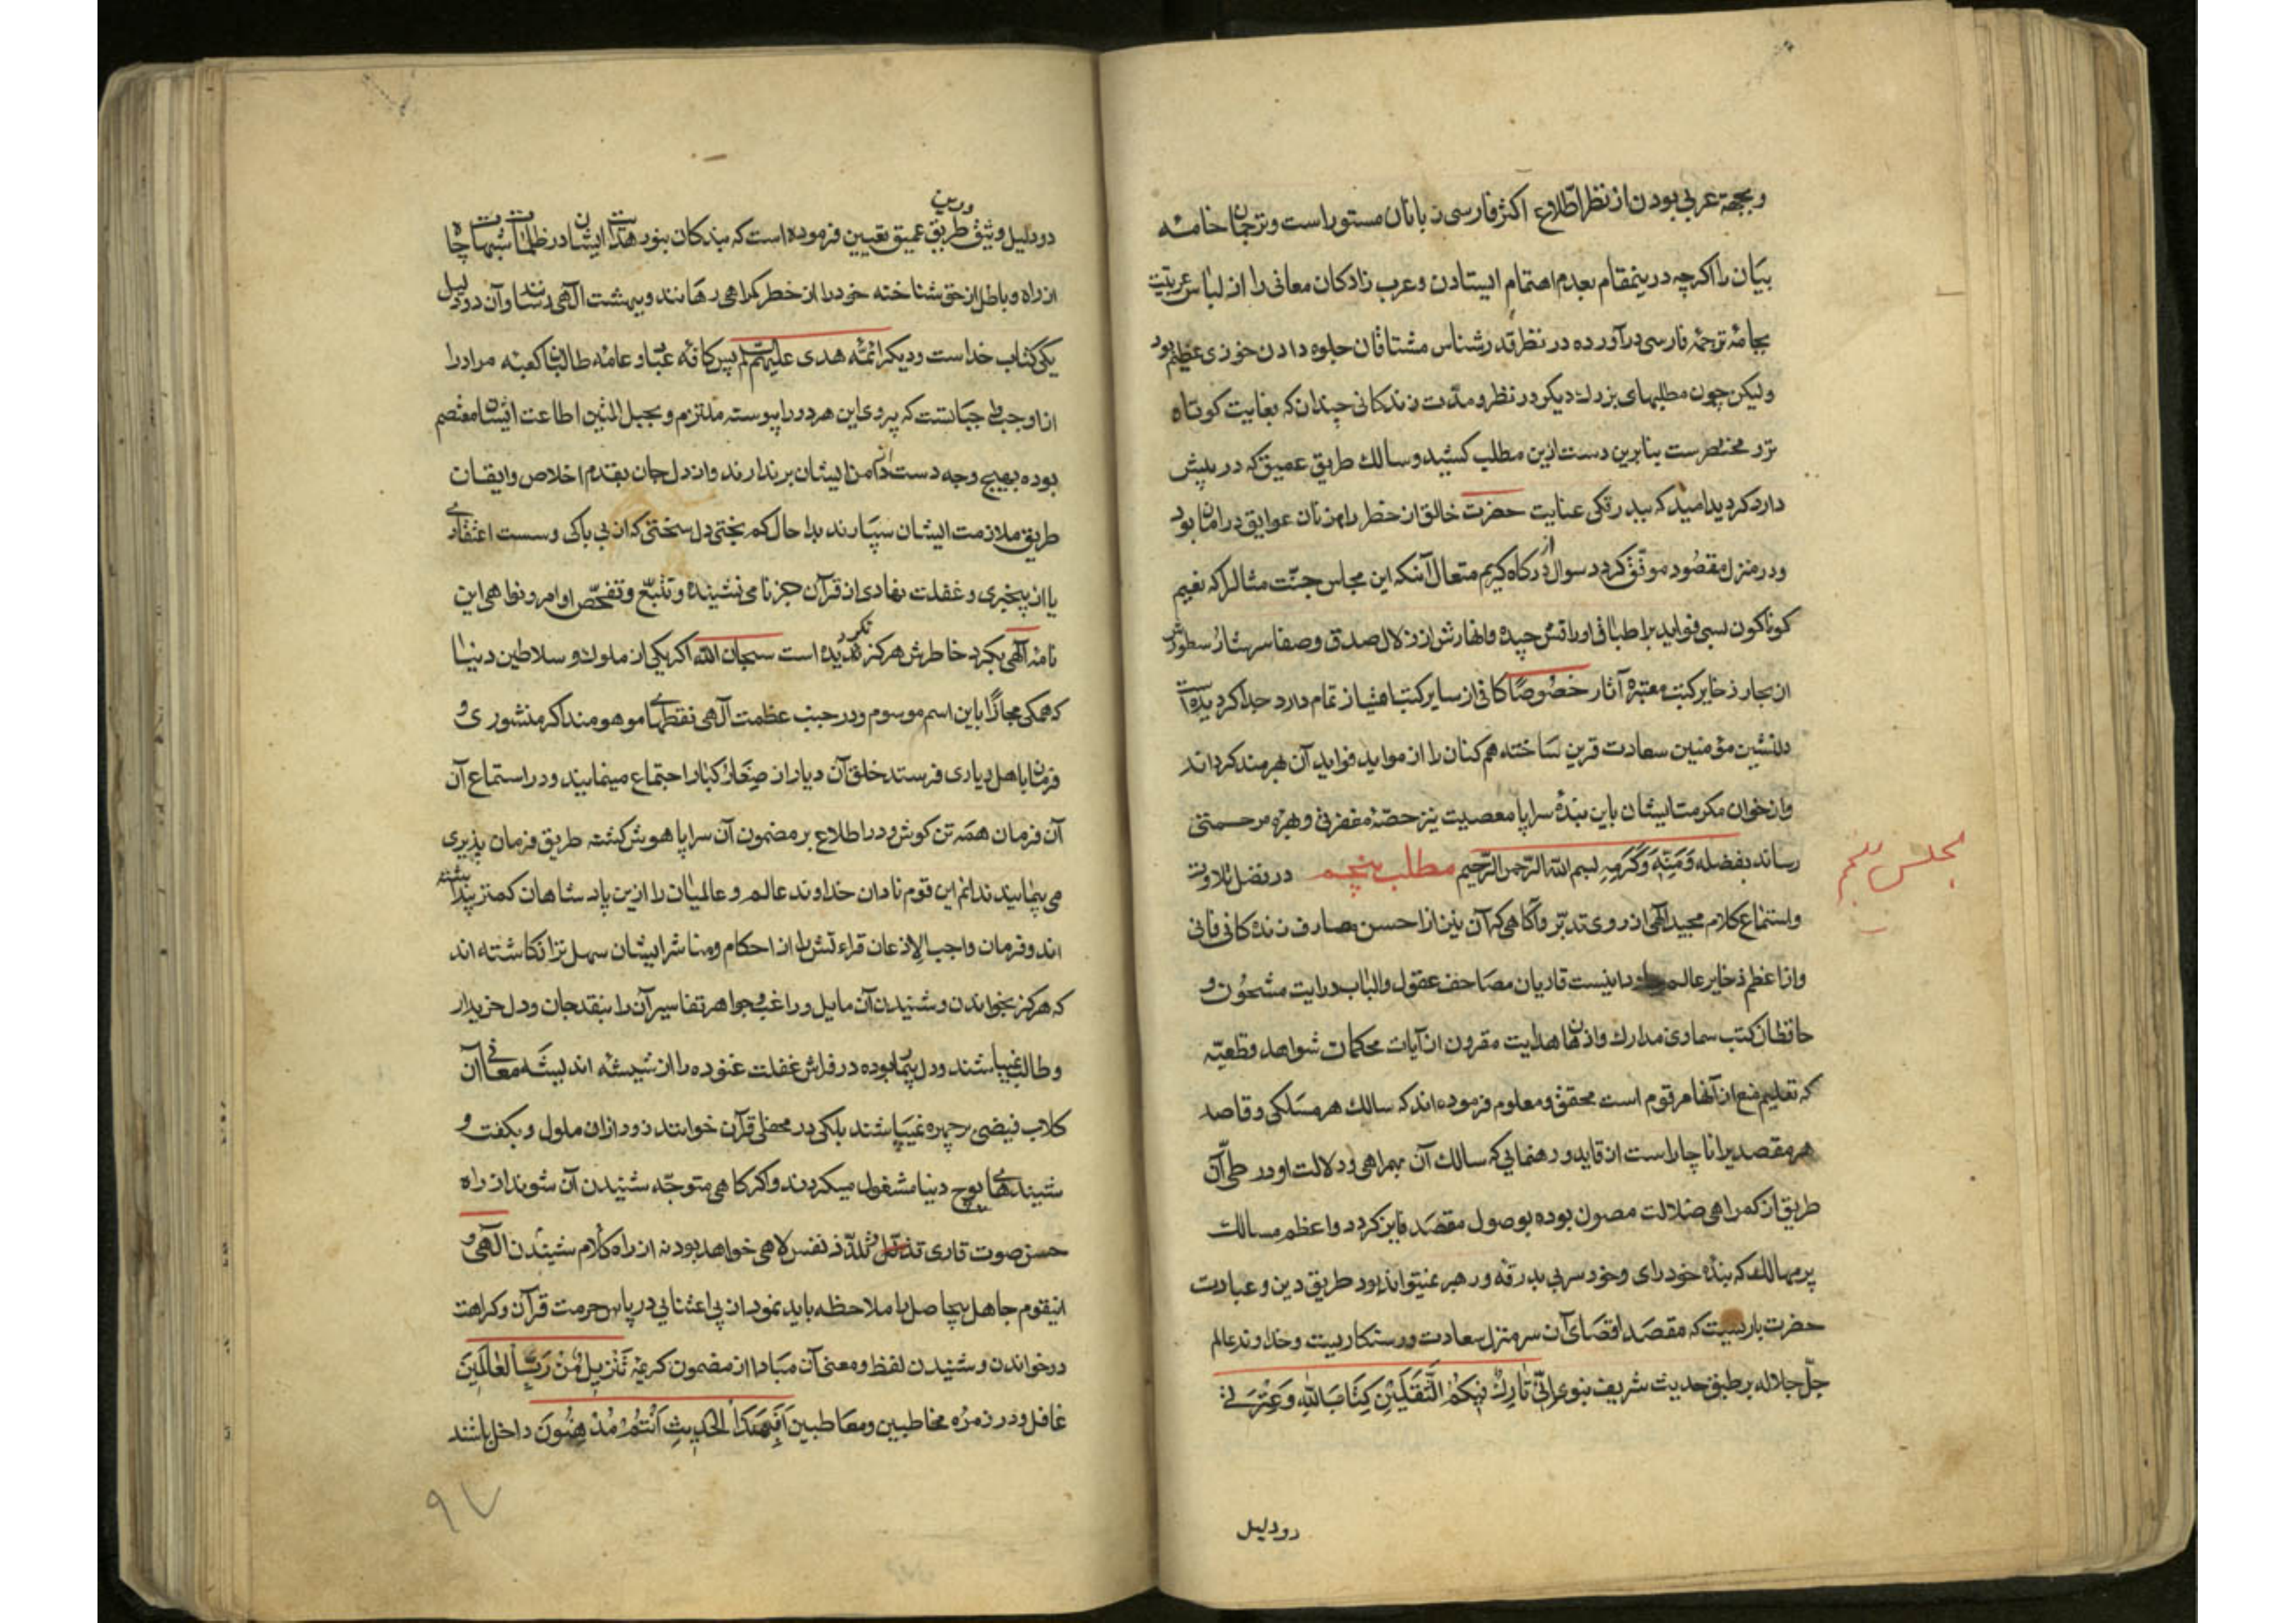 وبجهة عربی بودن از نظر اطلاع اکثر فارسی زبانان مستور است وترجمان خامه
بیان را اکرچه درینمقام بعدم اهتمام ایستادن وعرب زادکان معانی را از لباس عربیت
بجامهٔ ترجمهٔ فارسی درآورده در نظر قدرشناس مشتاقان جلوه دادن خوزی عظیم بود
ولیکن چون مطلبهای بزرك دیکر در نظر ومدت زندکانی چندان که بغایت کوتاه
تر مختصرست بنابرین دست ازین مطلب کشید وسالك طریق عمیق که در پیش
دارد کردید امید که ببدرقکی عنایت حضرت خالق از خطر راه زنان عوایق در امان بود
ودر منزل مقصود موفق کردد سوال از درکاه کریم متعال آنکه این مجلس جنت مثال را که نعیم
کوناکون بسی فواید بر اطباق اوراقش چیده وانهارش از زلال صدق وصفا سرشار سطورش
از بحار ذخایر کتب معتبرهٔ آثار خصوصا کافی از سایر کتب امتیاز تمام دارد جدا کردیده است
دلنشین مؤمنین سعادت قرین ساخته همکنان را از مواید فواید آن بهرمند کرداند
واز خوان مکرمت ایشان باین بندهٔ سراپا معصیت نیز حصهٔ مغفرتی وبهرهٔ مرحمتی
رساند بفضله وَمَنِّهِ وَکَرَمِهِ بسم الله الرّحمن الرّحیم مطلب پنجم در فضل تلاوت
مجلس پنجم
واستماع کلام مجید الهی از روی تدبّر وآکاهی که آن نیز از احسن مصارف زندکانی فانی
واز اعظم ذخایر عالم جاودانیست قاریان مصاحف عقول والباب درایت مشحون و
حافظان کتب سماوی مدارك واذهان هدایت مقرون از آیات محکمات شواهد قطعیّه
که تعلیم منع از آنها مرقوم است محقق ومعلوم فرموده اند که سالك هر مسلکی وقاصد
هر مقصدیرا ناچار است از قاید ورهنمایی که سالك آن بهمراهی ودلالت او در طیّ آن
طریق از کمراهی ضلالت مصون بوده بوصول مقصد فایز کردد واعظم مسالك
پر مهالك که بندهٔ خودرای وخودسر بی بدرقه ورهبر نمیتواند بود طریق دین وعبادت
حضرت باریست که مقصد اقصای آن سرمنزل سعادت ورستکاریست وخداوند عالم
جلّ جلاله بر طبق حدیث شریف نبوی اِنّی تَارِكٌ فِیکُمُ الثَّقَلَیْنِ کِتَابَ اللّٰهِ وَعِتْرَتی
دو دلیل
دو دلیل وثیق درین طریق عمیق تعیین فرموده است که بندکان بنور هدایت ایشان در ظلمات شبهات چاه
از راه وباطل از حق شناخته خود را از خطر کمراهی رهانند وببهشت الهی رسانند وآن دو دلیل
یکی کتاب خداست ودیکر ائمّه هدی علیهم السلم پس کافهٔ عباد وعامهٔ طالبان کعبهٔ مراد را
از اوجب واجباتست که پیروی این هر دو را پیوسته ملتزم وبحبل المتین اطاعت ایشان معتصم
بوده بهیچ وجه دست از دامن ایشان برندارند واز دل جان بقدم اخلاص وایقان
طریق ملازمت ایشان سپارند بدا حال کم بختی دل سختی که از بی باکی وسست اعتقادی
یا از بیخبری وغفلت نهادی از قرآن جز نامی نشنیده وتتبّع وتفحّص اوامر ونواهی این
نامهٔ الهی بکرد خاطرش هرکز نکردیده است سبحان الله اکر یکی از ملوك وسلاطین دنیا
که همکی مجازًا باین اسم موسوم ودر جنب عظمت آلهی نقطهای موهومند اکر منشوری و
فرمان باهل دیاری فرستد خلق آن دیار از صغار وکبار اجتماع مینمایند ودر استماع آن
آن فرمان همه تن کوش ودر اطلاع بر مضمون آن سراپا هوش کشته طریق فرمان پذیری
می پیمایند ندانم این قوم نادان خداوند عالم وعالمیان را ازین پادشاهان کمتر پنداشته
اند وفرمان واجب الاذعان قراءتش را از احکام ومناشر ایشان سهل تر انکاشته اند
که هرکز بخواندن وشنیدن آن مایل وراغب وجواهر تفاسیر آن را بنقد جان ودل خریدار
وطالب نمیباشند ودل بیمار بوده در فراش غفلت غنوده را از شیشه اندیشه معانی آن
کلاب فیضی بر چهره نمیپاشند بلکی در محفلی قرآن خوانند زود از ان ملول وبکفت و
شنیدهای پوچ دنیا مشغول میکردند واکر کاهی متوجّه شنیدن آن شوند از راه
حسن صوت قاری وتلذّذ نفس لاهی خواهد بود نه از راه کلام شنیدن الهی و
اینقوم جاهل بیحاصل را ملاحظه باید نمود از بی اعتنایی در پاس حرمت قرآن وکراهت
در خواندن وشنیدن لفظ ومعنی آن مبادا از مضمون کریمهٔ تَنْزِیلٌ مِنْ رَبِّ الْعٰالَمِینَ
غافل ودر زمرهٔ مخاطبین ومعاطبین اَفَبِهٰذَا الْحَدِیثِ اَنْتُمْ مُدْهِنُونَ داخل باشند
۹۷